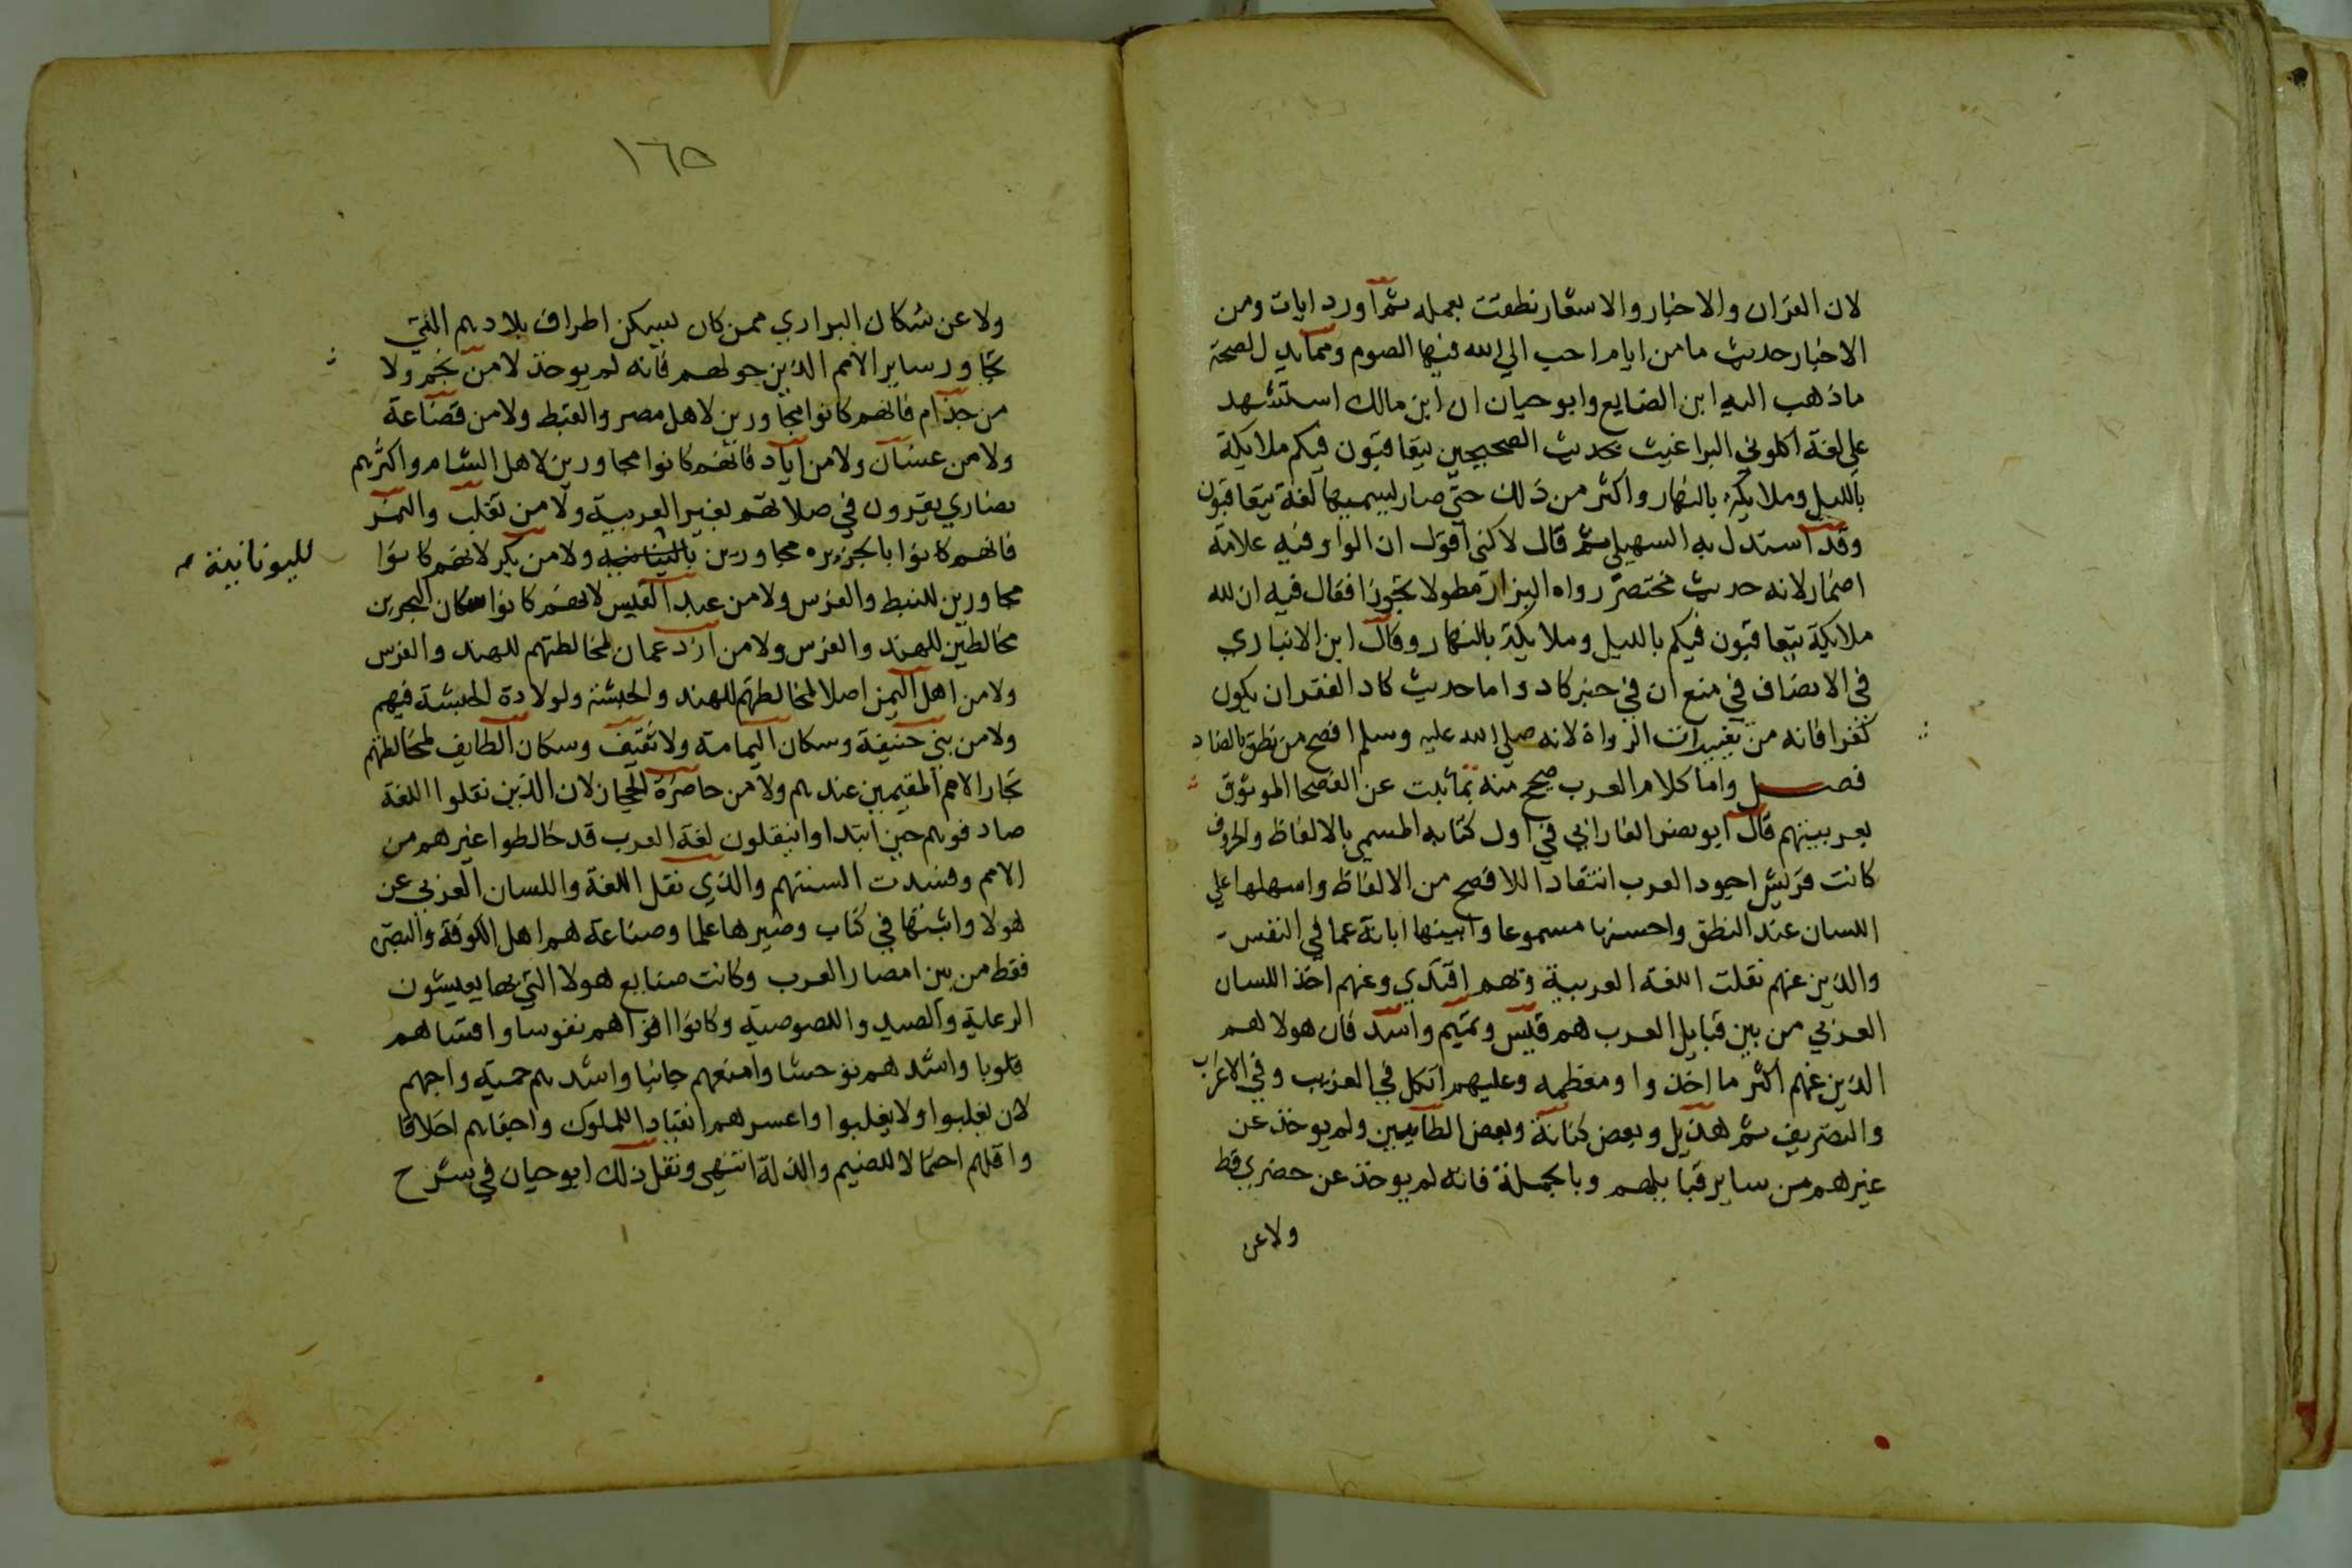 لان القران والاخبار والاشعار نطقت بعمله ثم اورد ايات ومن
الاخبار حديث ما من ايام احب الي الله فيها الصوم ومما يدل لصحة
ما ذهب اليه ابن الضايع وابو حيان ان ابن مالك استشهد
علي لغة اكلوني البراغيث بحديث الصحيحين يتعاقبون فيكم ملايكة
بالليل وملايكة بالنهار واكثر من ذلك حتي صار يسميها لغة يتعاقبون
وقد استدل به السهيلي ثم قال لاكني اقول ان الواو فيه علامة
اضمار لانه حديث مختصر رواه البزار مطولا مجودا فقال فيه ان لله
ملايكة يتعاقبون فيكم بالليل وملايكة بالنهار وقال ابن الانباري
في الانصاف في منع ان في خبر كاد واما حديث كاد الفقر ان يكون
كفرا فانه من تغييرات الرواة لانه صلي الله عليه وسلم افصح من نطق بالضاد
فصل واما كلام العرب صح منه بما ثبت عن الفصحا الموثوق
بعربيتهم قال ابو نصر الفارابي في اول كتابه المسمي بالالفاظ والحروف
كانت قريش اجود العرب انتقادا للافصح من الالفاظ واسهلها علي
اللسان عند النطق واحسنها مسموعا وابينها ابانة عما في النفس
والذين عنهم نقلت اللغة العربية وبهم اقتدي وعنهم اخذ اللسان
العربي من بين قبايل العرب هم قيس وتميم واسد فان هولا هم
الذين عنهم اكثر ما اخذوا ومعظمه وعليهم اتكل في الغريب وفي الاعراب
والتصريف ثم هذيل وبعض كنانة وبعض الطاييين ولم يوخذ عن
غيرهم من ساير قبايلهم وبالجملة فانه لم يوخذ عن حضري قط
ولا عن
١٦٥
ولا عن سكان البراري ممن كان يسكن اطراف بلادهم التي
تجاور ساير الامم الذين حولهم فانه لم يوخذ لا من لخم ولا
من جذام فانهم كانوا مجاورين لاهل مصر والقبط ولا من قضاعة
ولا من غسان ولا من اياد فانهم كانوا مجاورين لاهل الشام واكثرهم
نصاري يقرون في صلاتهم بغير العربية ولا من تغلب والنمر
فانهم كانوا بالجزيره مجاورين ولا من بكر لانهم كانوا
لليونانية
مجاورين للنبط والفرس ولا من عبد القيس لانهم كانوا سكان البحرين
مخالطين للهند والفرس ولا من ازد عمان لمخالطتهم للهند والفرس
ولا من اهل اليمن اصلا لمخالطتهم للهند والحبشة ولولادة الحبشة فيهم
ولا من بني حنيفة وسكان اليمامة ولا ثقيف وسكان الطايف لمخالطتهم
تجار الامم المقيمين عندهم ولا من حاضرة الحجاز لان الذين نقلوا اللغة
صادفوهم حين ابتداوا ينقلون لغة العرب قد خالطوا غيرهم من
الامم وفسدت السنتهم والذي نقل اللغة واللسان العربي عن
هولا واثبتها في كتاب وصيرها علما وصناعة هم اهل الكوفة والبصره
فقط من بين امصار العرب وكانت صنايع هولا التي بها يعيشون
الرعاية والصيد واللصوصية وكانوا اقواهم نفوسا واقساهم
قلوبا واشدهم توحشا وامنعهم جانبا واشدهم حمية واحبهم
لان يغلبوا ولا يغلبوا واعسرهم انقيادا للملوك واجفاهم اخلاقا
واقلهم احتمالا للضيم والذلة انتهي ونقل ذلك ابو حيان في شرح